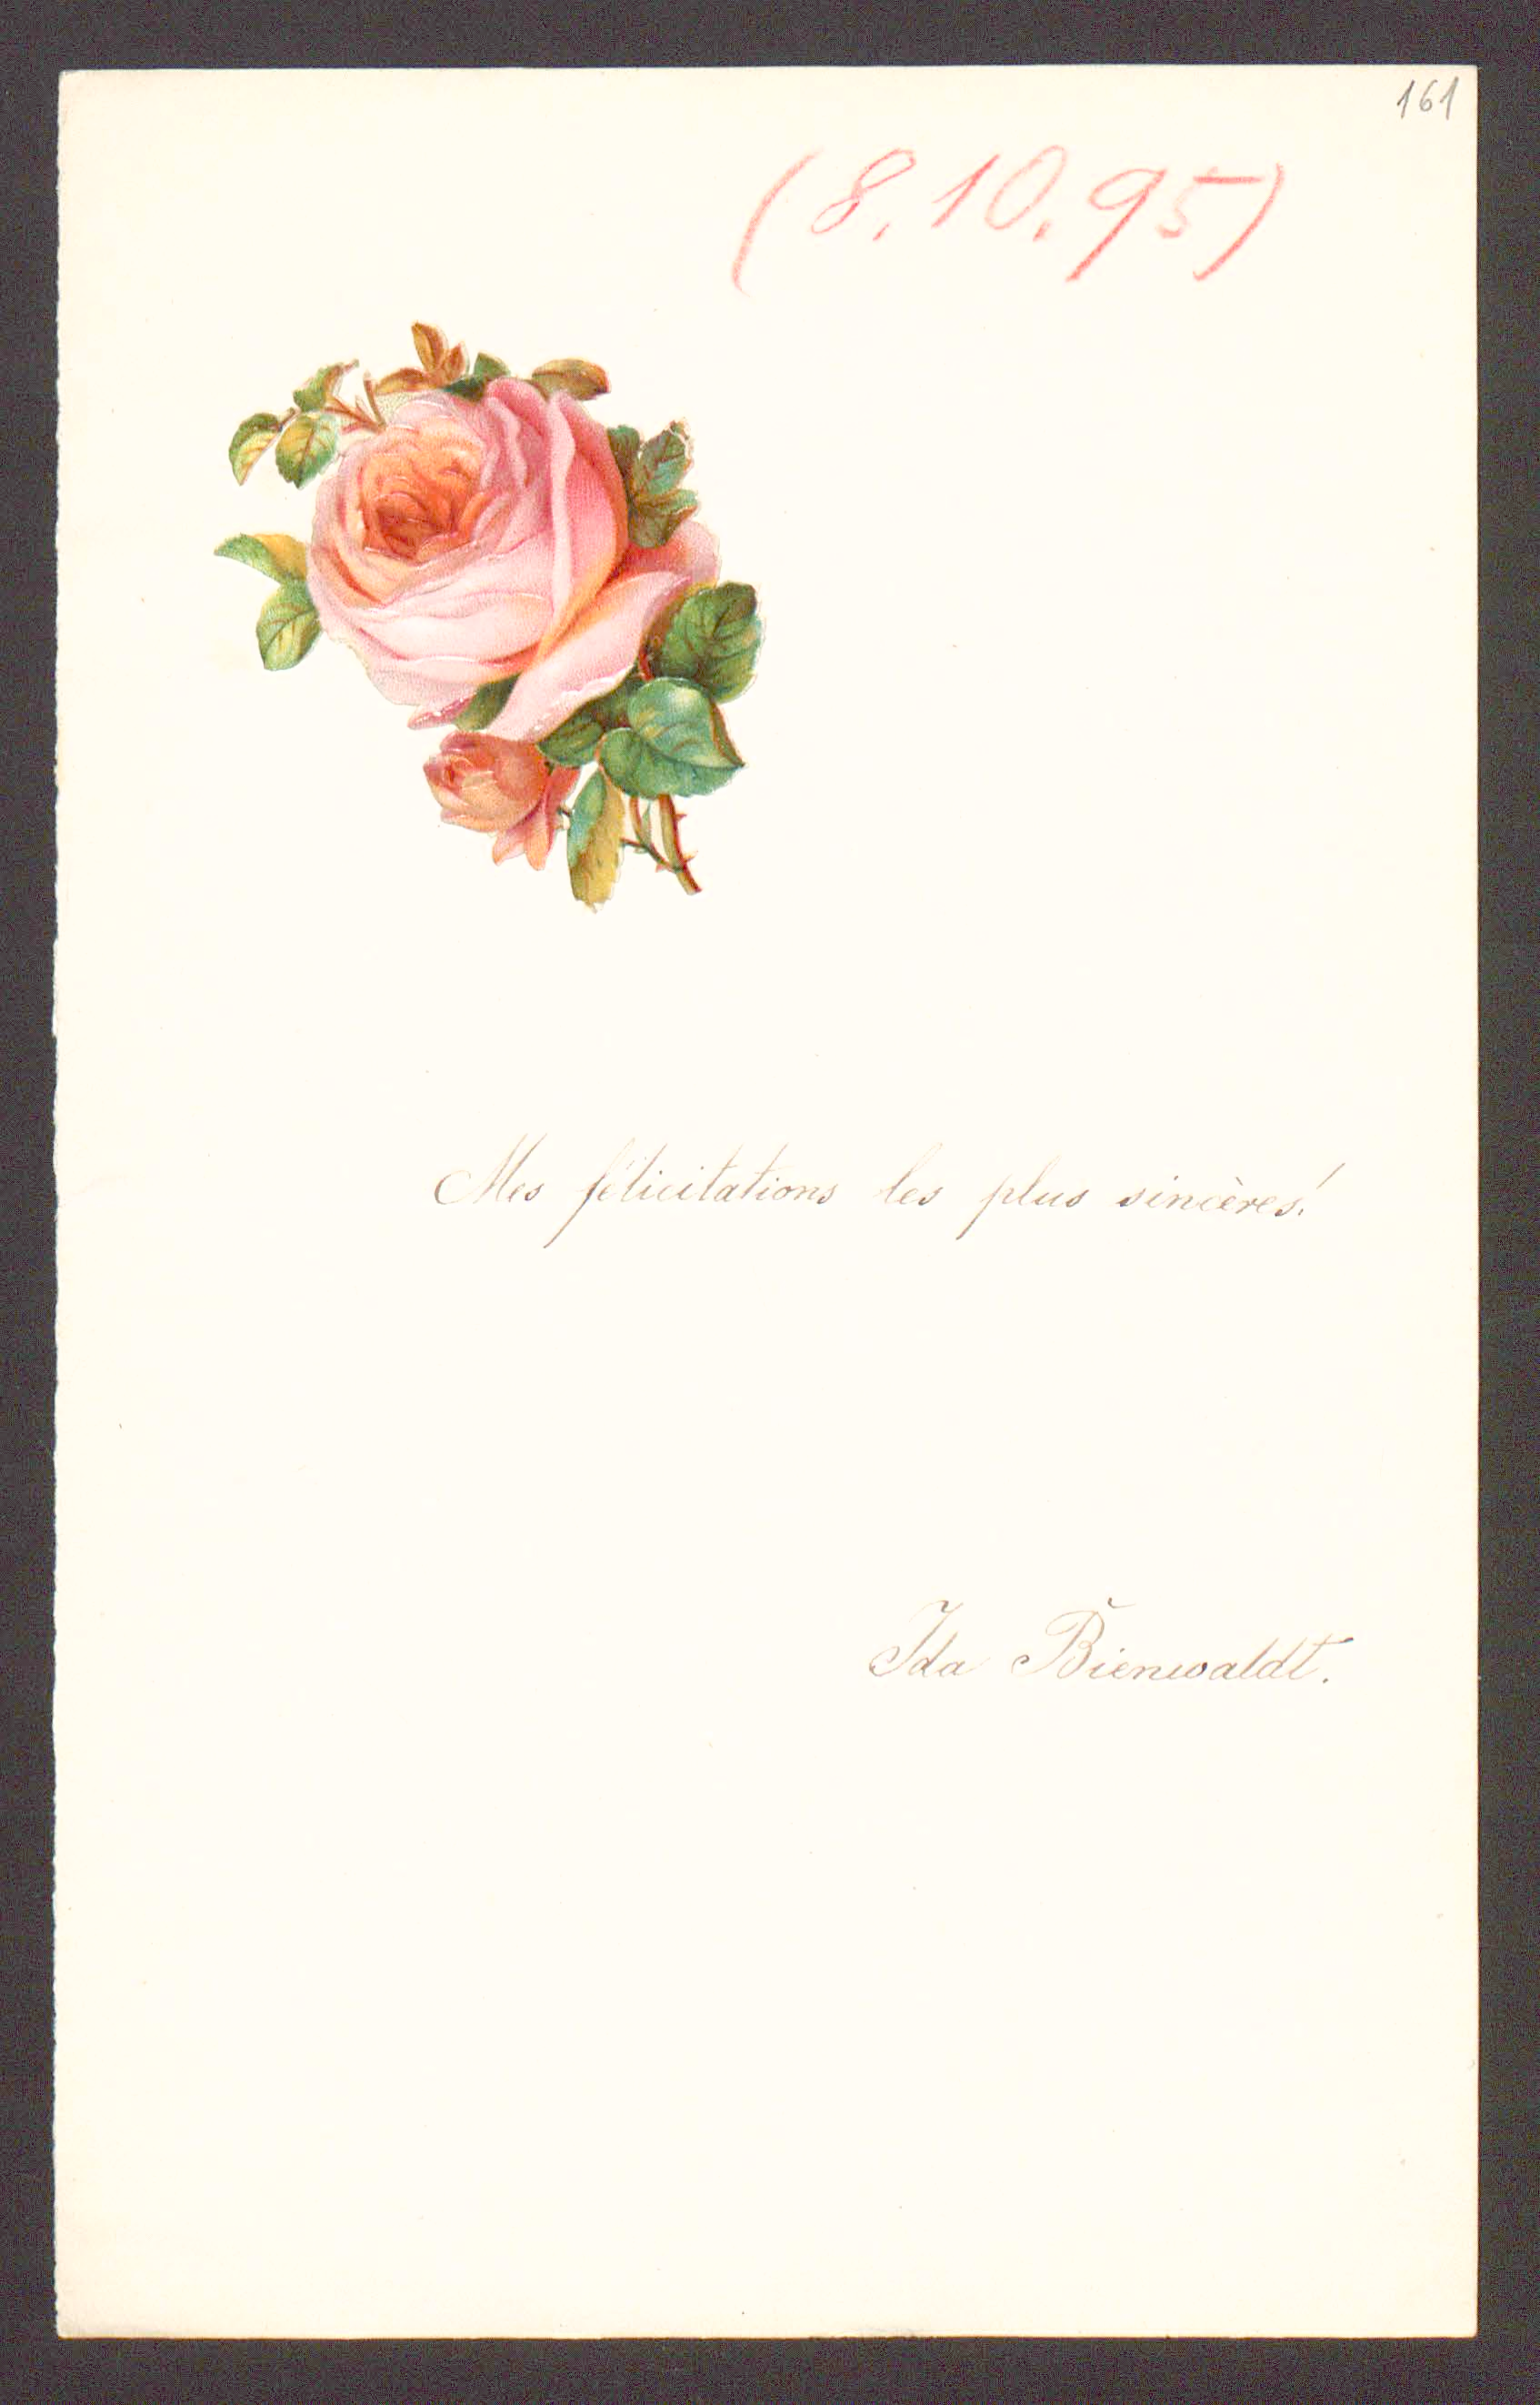 161
(8.10.95)
Mes félicitations les plus sincères!
Ida Bienwaldt.